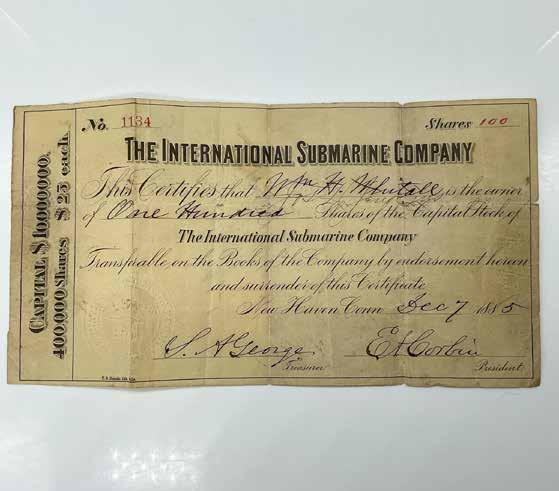 No. 1134 Shares 100
THE INTERNATIONAL SUBMARINE COMPANY
This Certifies that Wm H. Whitall is the owner
of One Hundred Shares of the Capital Stock of
The International Submarine Company
Transferable on the Books of the Company by endorsement hereon
and surrender of this Certificate
New Haven Conn Dec 7 1885
S. A George E A Corbin
Treasurer President
CAPITAL $10,000,000.
400,000 Shares $25 each.